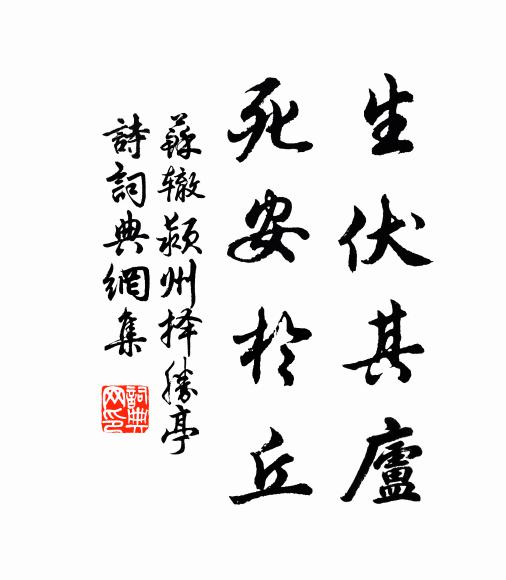 生伏其廬
死安於丘
蘇辙颍州择勝亭
詩詞典網集
詞典网印